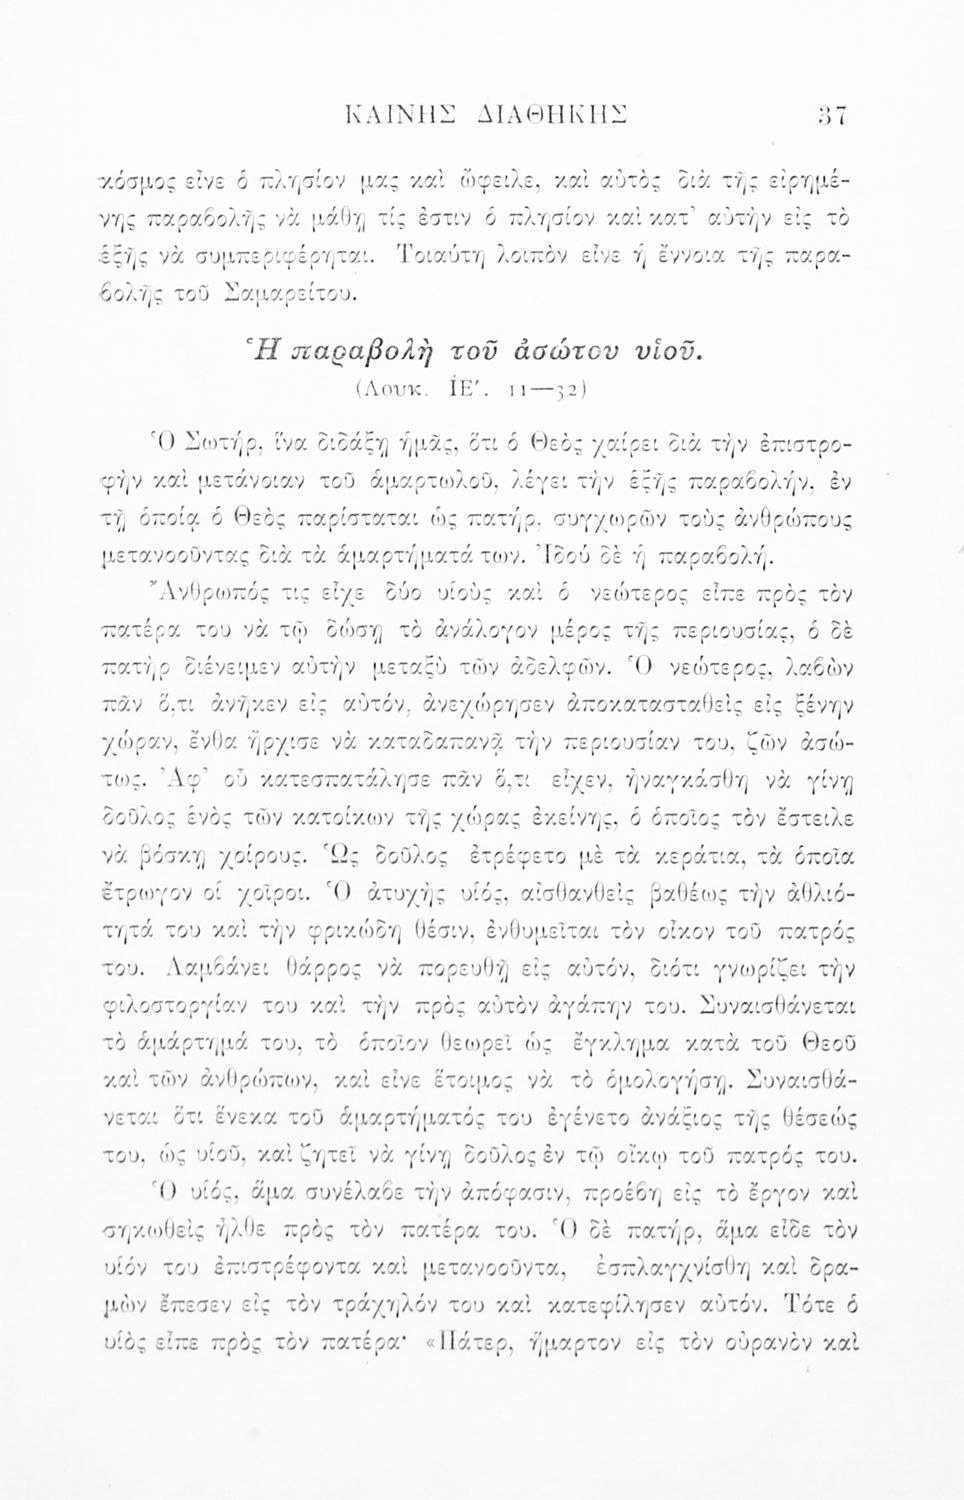 ΚΑΙΝΗΣ ΔΙΑΘΗΚΗΣ 37
κόσμος εἶνε ὁ πλησίον μας καὶ ὤφειλε, καὶ αὐτὸς διὰ τῆς εἰρημέ-
νης παραβολῆς νὰ μάθῃ τίς ἐστιν ὁ πλησίον καὶ κατ’ αὐτὴν εἰς τὸ
ἑξῆς νὰ συμπεριφέρηται. Τοιαύτη λοιπὸν εἶνε ἡ ἔννοια τῆς παρα-
βολῆς τοῦ Σαμαρείτου.
Ἡ παραβολὴ τοῦ ἀσώτου υἱοῦ.
(Λουκ. ΙΕ΄. 11—32)
Ὁ Σωτήρ, ἵνα διδάξῃ ἡμᾶς, ὅτι ὁ Θεὸς χαίρει διὰ τὴν ἐπιστρο-
φὴν καὶ μετάνοιαν τοῦ ἁμαρτωλοῦ, λέγει τὴν ἑξῆς παραβολήν, ἐν
τῇ ὁποίᾳ ὁ Θεὸς παρίσταται ὡς πατήρ, συγχωρῶν τοὺς ἀνθρώπους
μετανοοῦντας διὰ τὰ ἁμαρτήματά των. Ἰδού δὲ ἡ παραβολή.
Ἄνθρωπός τις εἶχε δύο υἱοὺς καὶ ὁ νεώτερος εἶπε πρὸς τὸν
πατέρα του νὰ τῷ δώσῃ τὸ ἀνάλογον μέρος τῆς περιουσίας, ὁ δὲ
πατὴρ διένειμεν αὐτὴν μεταξὺ τῶν ἀδελφῶν. Ὁ νεώτερος, λαβὼν
πᾶν ὅ,τι ἀνῆκεν εἰς αὐτόν, ἀνεχώρησεν ἀποκατασταθεὶς εἰς ξένην
χώραν, ἔνθα ἤρχισε νὰ καταδαπανᾷ τὴν περιουσίαν του, ζῶν ἀσώ-
τως. Ἀφ’ οὗ κατεσπατάλησε πᾶν ὅ,τι εἶχεν, ἠναγκάσθη νὰ γίνῃ
δοῦλος ἑνὸς τῶν κατοίκων τῆς χώρας ἐκείνης, ὁ ὁποῖος τὸν ἔστειλε
νὰ βόσκῃ χοίρους. Ὡς δοῦλος ἐτρέφετο μὲ τὰ κεράτια, τὰ ὁποῖα
ἔτρωγον οἱ χοῖροι. Ὁ ἀτυχὴς υἱός, αἰσθανθεὶς βαθέως τὴν ἀθλιό-
τητά του καὶ τὴν φρικώδη θέσιν, ἐνθυμεῖται τὸν οἶκον τοῦ πατρός
του. Λαμβάνει θάρρος νὰ πορευθῇ εἰς αὐτόν, διότι γνωρίζει τὴν
φιλοστοργίαν του καὶ τὴν πρὸς αὐτὸν ἀγάπην του. Συναισθάνεται
τὸ ἁμάρτημά του, τὸ ὁποῖον θεωρεῖ ὡς ἔγκλημα κατὰ τοῦ Θεοῦ
καὶ τῶν ἀνθρώπων, καὶ εἶνε ἕτοιμος νὰ τὸ ὁμολογήσῃ. Συναισθά-
νεται ὅτι ἕνεκα τοῦ ἁμαρτήματός του ἐγένετο ἀνάξιος τῆς θέσεώς
του, ὡς υἱοῦ, καὶ ζητεῖ νὰ γίνῃ δοῦλος ἐν τῷ οἴκῳ τοῦ πατρός του.
Ὁ υἱός, ἅμα συνέλαβε τὴν ἀπόφασιν, προέβη εἰς τὸ ἔργον καὶ
σηκωθεὶς ἦλθε πρὸς τὸν πατέρα του. Ὁ δὲ πατήρ, ἅμα εἶδε τὸν
υἱόν του ἐπιστρέφοντα καὶ μετανοοῦντα, ἐσπλαγχνίσθη καὶ δρα-
μὼν ἔπεσεν εἰς τὸν τράχηλόν του καὶ κατεφίλησεν αὐτόν. Τότε ὁ
υἱὸς εἶπε πρὸς τὸν πατέρα· «Πάτερ, ἥμαρτον εἰς τὸν οὐρανὸν καὶ